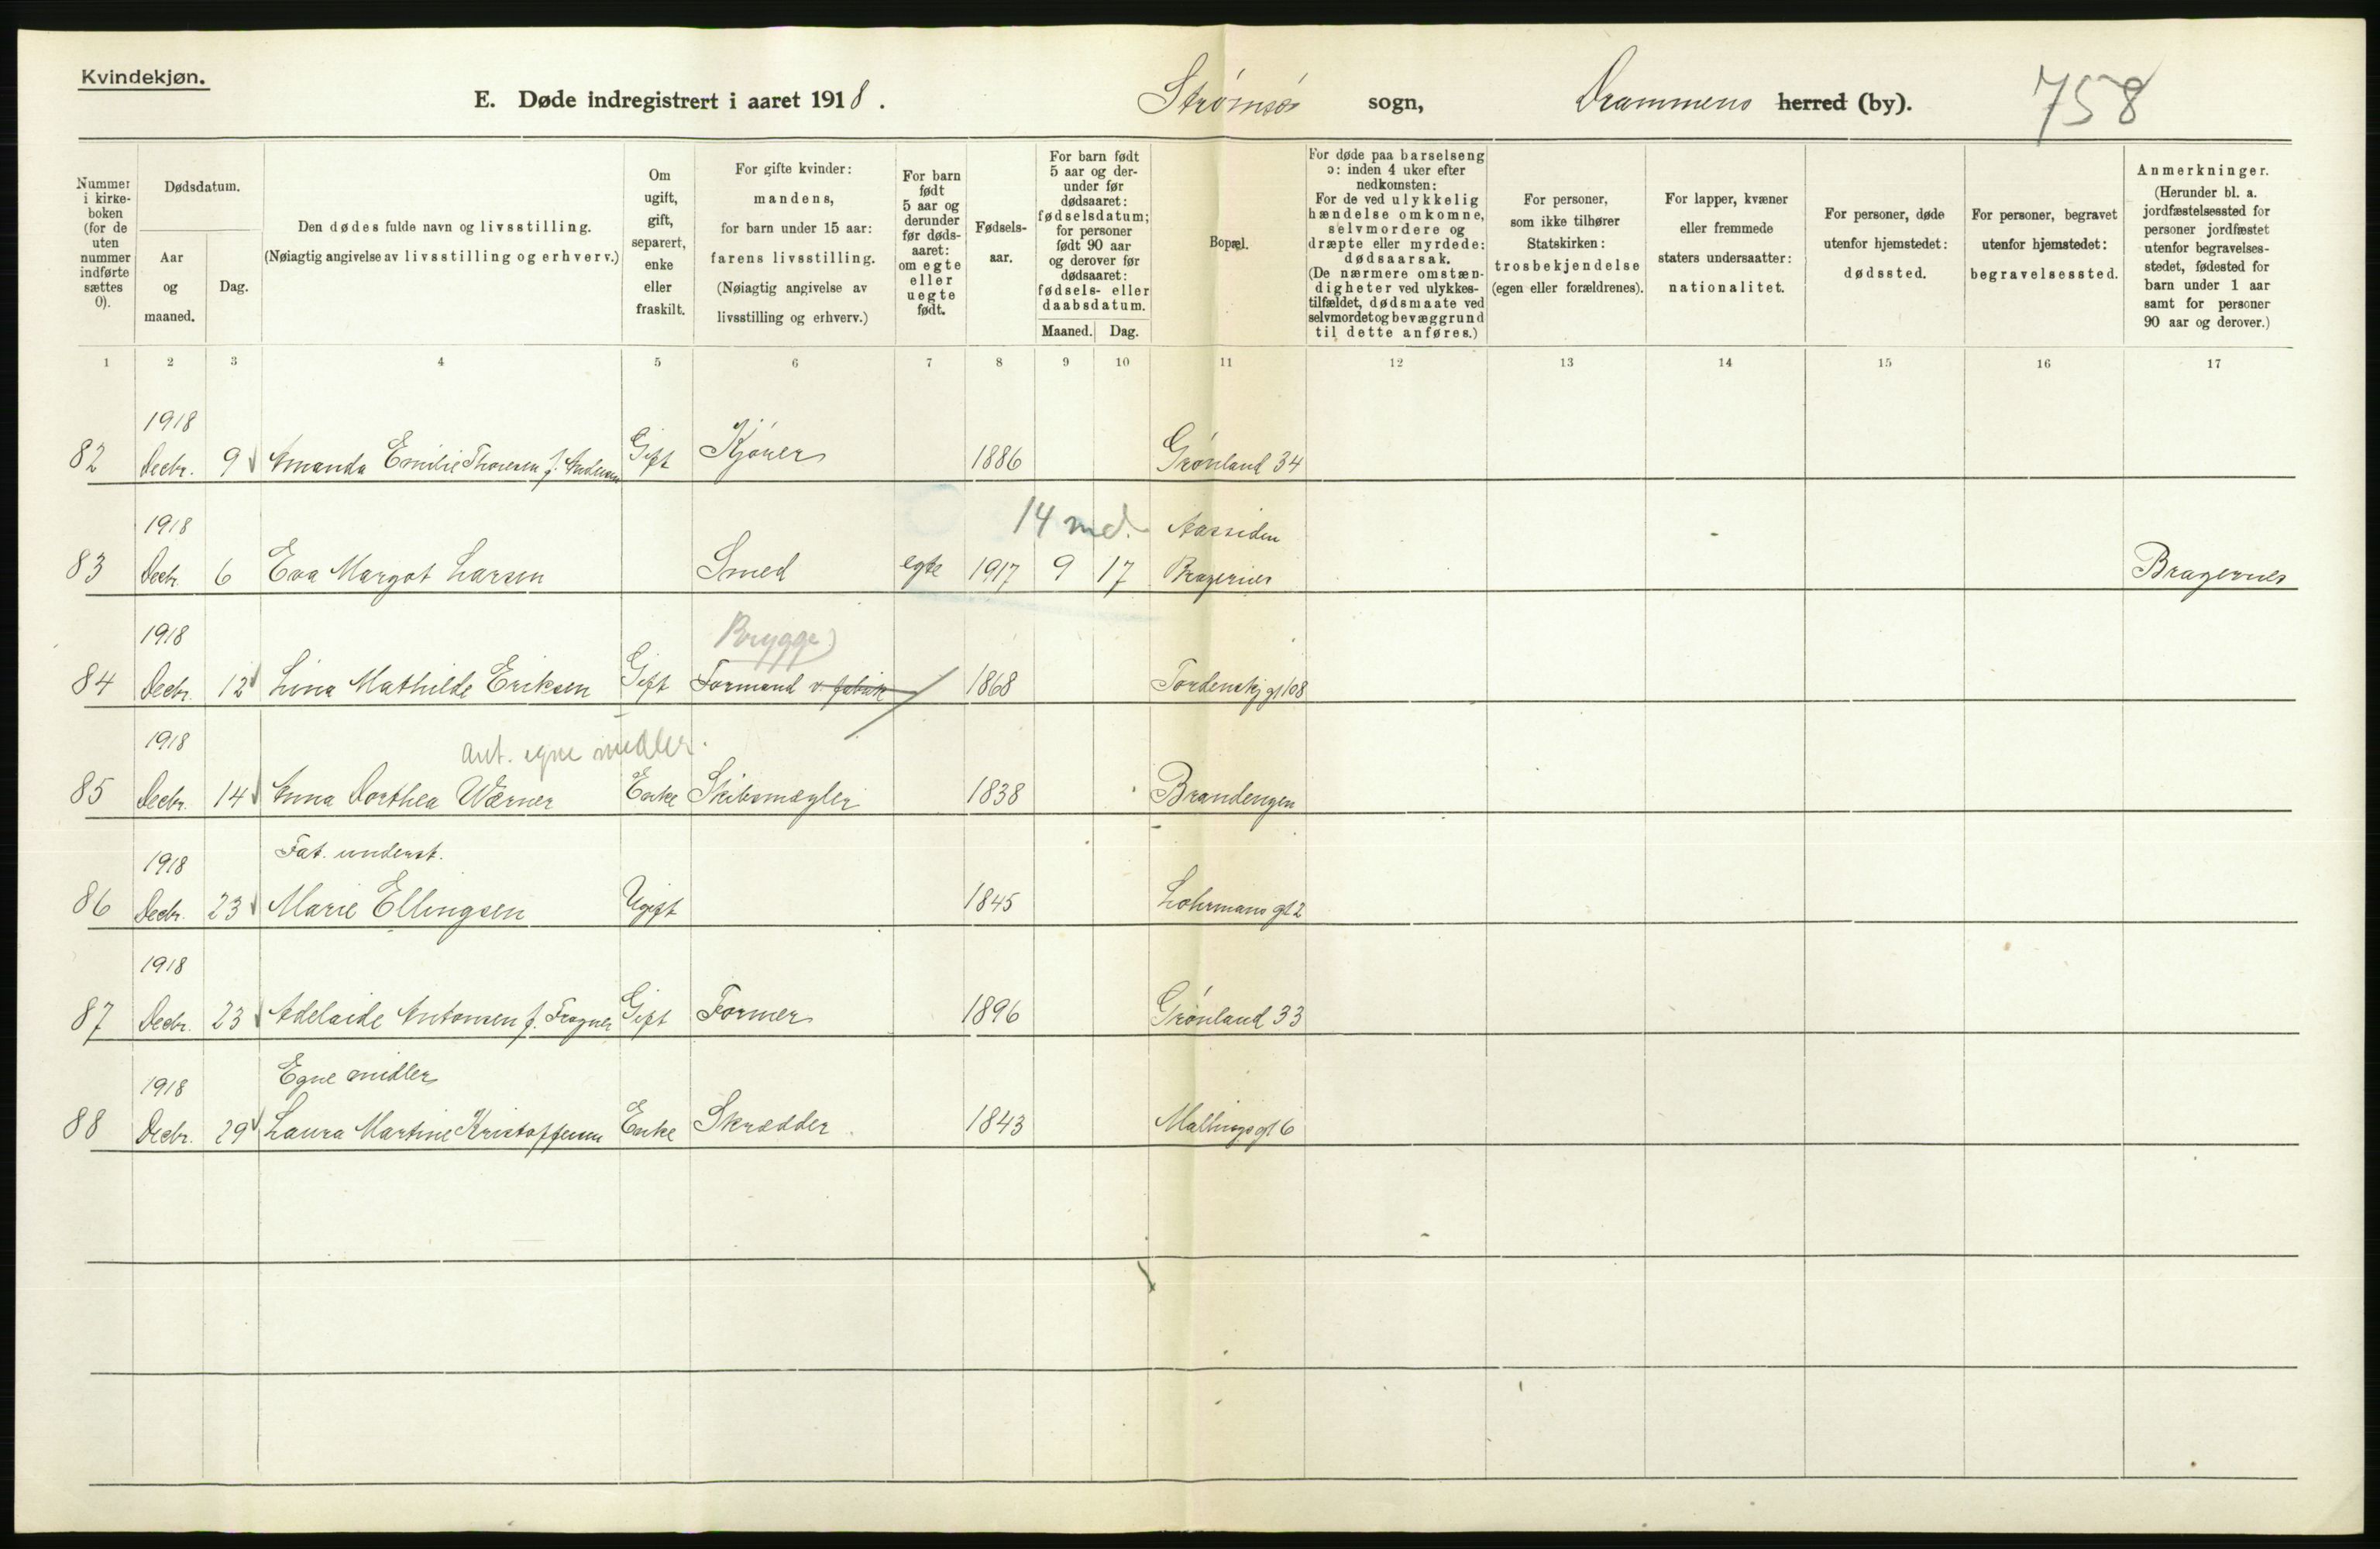 Kvindekjøn.
E. Døde indregistrert i aaret 1918.
Strømsø sogn, Drammens herred (by). 758
Nummer i kirkeboken (for de uten nummer indførte sættes 0).
Dødsdatum.
Aar og maaned.
Dag.
Den dødes fulde navn og livsstilling.
(Nøiagtig angivelse av livsstilling og erhverv.)
Om ugift, gift, separert, enke eller fraskilt.
For gifte kvinder: mandens, for barn under 15 aar: farens livsstilling. (Nøiagtig angivelse av livsstilling og erhverv.)
For barn født 5 aar og derunder før dødsaaret: om egte eller uegte født.
Fødselsaar.
For barn født 5 aar og derunder før dødsaaret: fødselsdatum; for personer født 90 aar og derover før dødsaaret: fødsels- eller daabsdatum.
Maaned. Dag.
Bopæl.
For døde paa barselseng ɔ: inden 4 uker efter nedkomsten: For de ved ulykkelig hændelse omkomne, selvmordere og dræpte eller myrdede: dødsaarsak. (De nærmere omstændigheter ved ulykkestilfældet, dødsmaate ved selvmordet og bevæggrund til dette anføres.)
For personer, som ikke tilhører Statskirken: trosbekjendelse (egen eller forældrenes).
For lapper, kvæner eller fremmede staters undersaatter: nationalitet.
For personer, døde utenfor hjemstedet: dødssted.
For personer, begravet utenfor hjemstedet: begravelsessted.
Anmerkninger. (Herunder bl. a. jordfæstelsessted for personer jordfæstet utenfor begravelsesstedet, fødested for barn under 1 aar samt for personer 90 aar og derover.)
1 2 3 4 5 6 7 8 9 10 11 12 13 14 15 16 17
1918
82 Decbr. 9 Amanda Emilie Thoresen f. Andersen Gift Kjører 1886 Grønland 34
1918 14 md. Aassiden
83 Decbr. 6 Eva Margot Larsen Smed egte 1917 9 17 Bragernes Bragernes
1918 Brygge)
84 Decbr. 12 Lina Mathilde Eriksen Gift Formand v. fabrik 1868 Tordenskj gt 108
1918 ant. egne midler.
85 Decbr. 14 Anna Dorthea Wærner Enke Skibsmægler 1838 Brandengen
1918 Fat. underst.
86 Decbr. 23 Marie Ellingsen Ugift 1845 Lohrmans gt 2
1918
87 Decbr. 23 Adelaide Antonsen f. Fragner Gift Former 1896 Grønland 33
1918 Egne midler
88 Decbr. 29 Laura Martine Kristoffersen Enke Skrædder 1843 Mallings gt 6